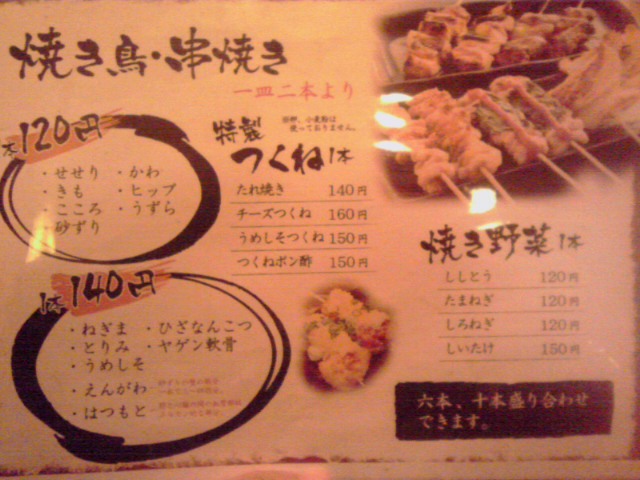 焼き鳥・串焼き
一皿二本より
本120円
・せせり ・かわ
・きも ・ヒップ
・こころ ・うずら
・砂ずり
1本140円
・ねぎま ・ひざなんこつ
・とりみ ・ヤゲン軟骨
・うめしそ
・えんがわ
・はつもと
特製
小麦粉は
使っておりません。
つくね1本
たれ焼き 140円
チーズつくね 160円
うめしそつくね 150円
つくねポン酢 150円
焼き野菜1本
ししとう 120円
たまねぎ 120円
しろねぎ 120円
しいたけ 150円
六本、十本盛り合わせ
できます。